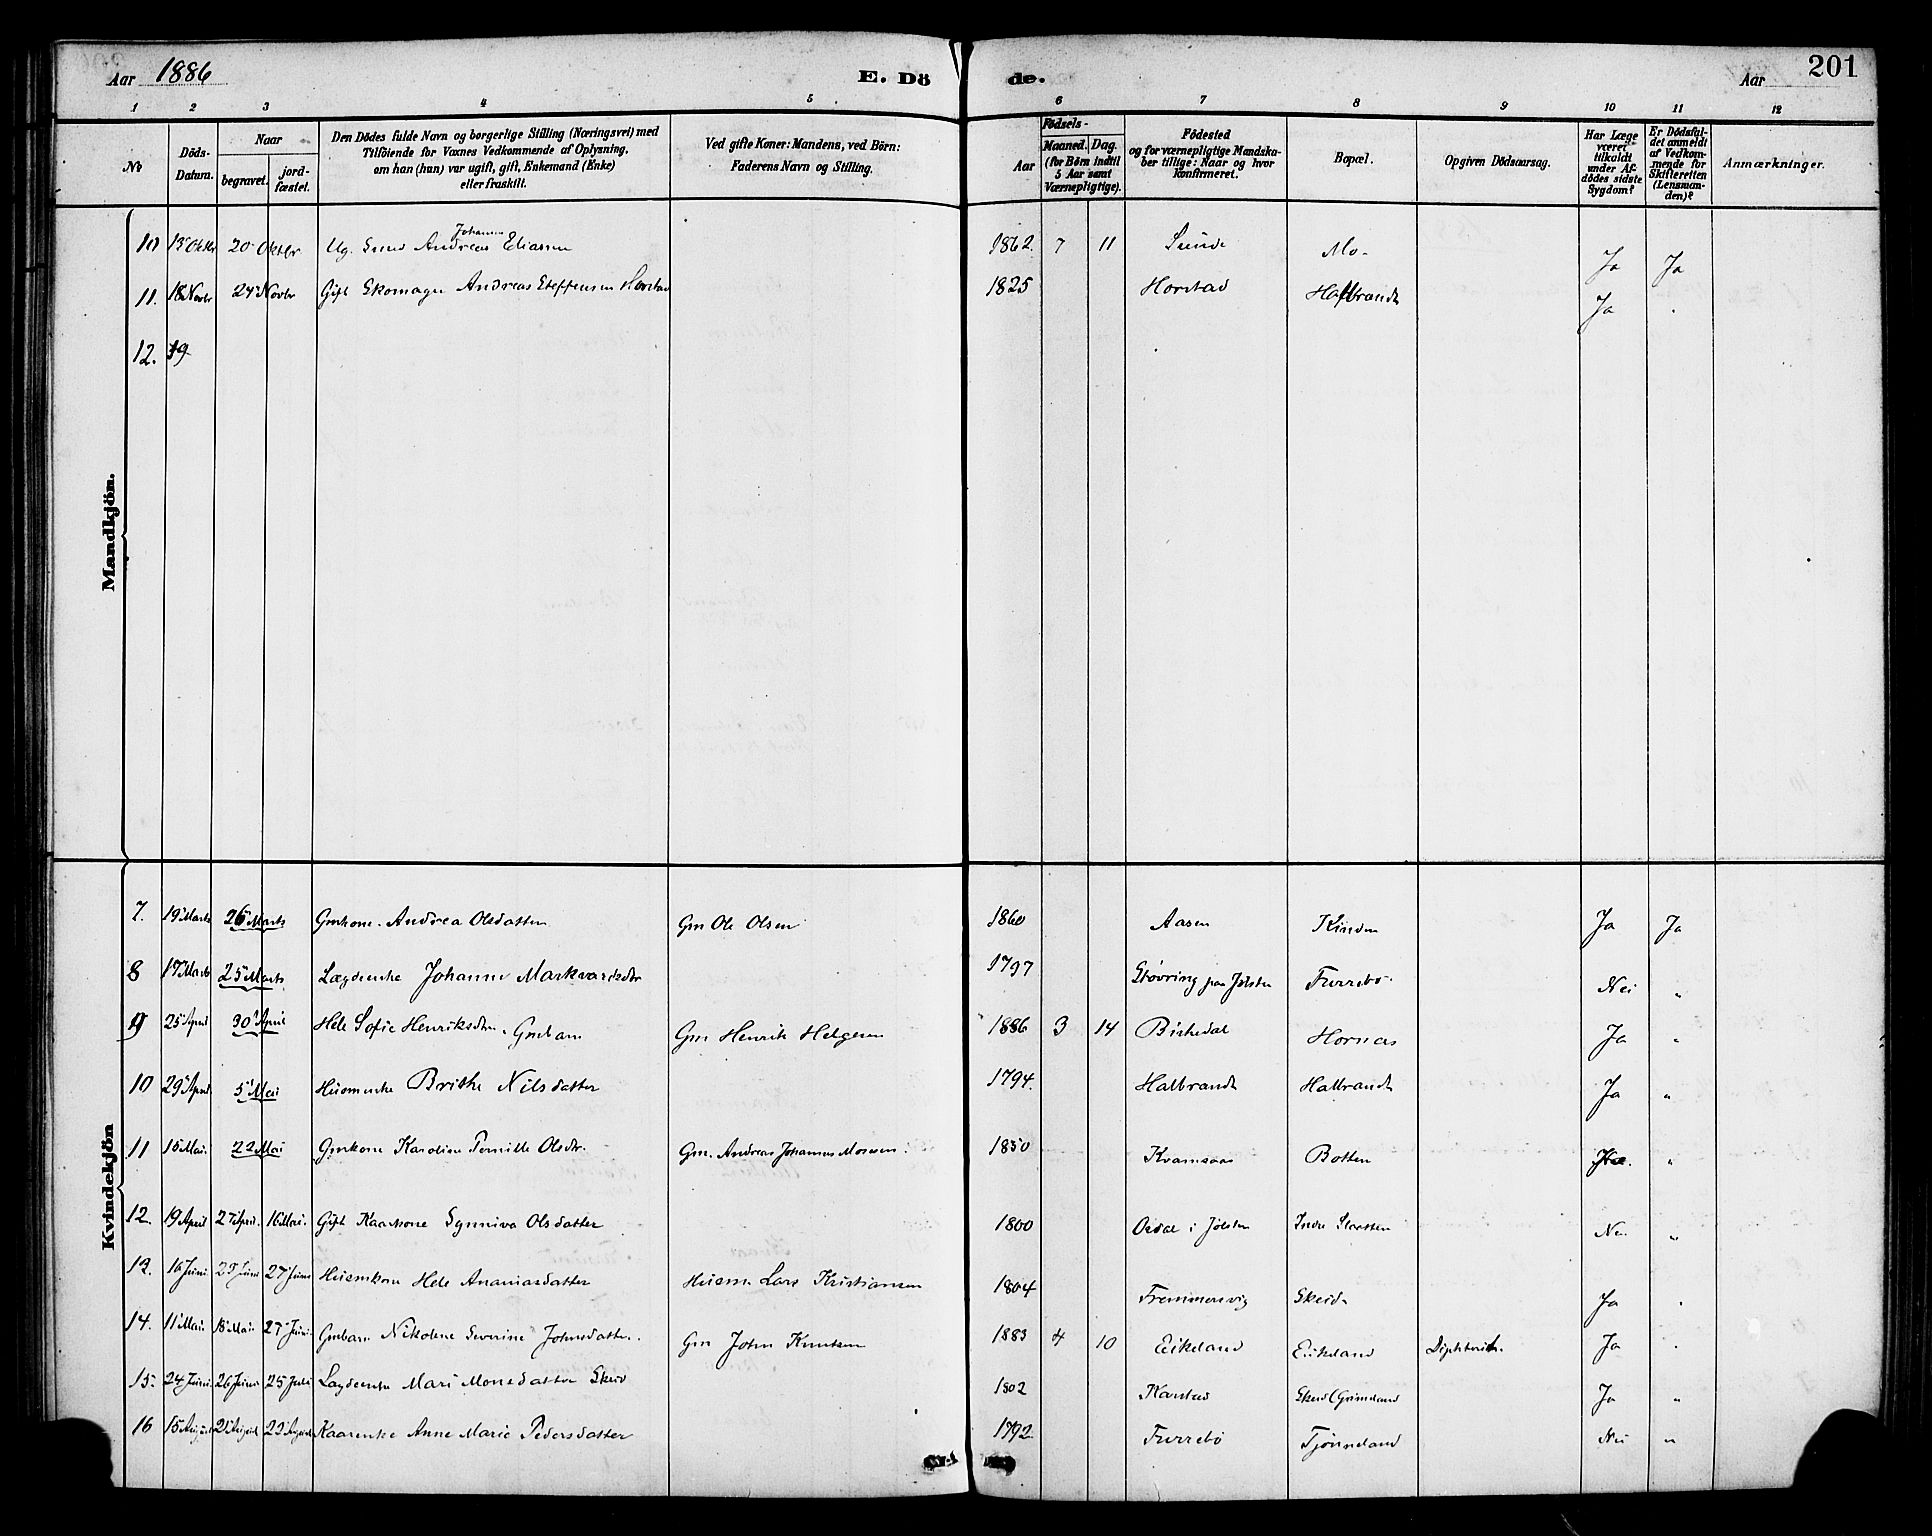 Aar 1886 E. Dö de. Aar 201
1 2 3 4 5 6 7 8 9 10 11 12
№
Döds-Datum.
Naar
begravet. jordfæstet.
Den Dödes fulde Navn og borgerlige Stilling (Næringsvei) med
Tilföiende for Voxnes Vedkommende af Oplysning,
om han (hun) var ugift, gift, Enkemand (Enke)
eller fraskilt.
Ved gifte Koner: Mandens, ved Börn:
Faderens Navn og Stilling.
Födsels-
Aar
Maaned. Dag.
(for Börn indtil
5 Aar samt
Værnepligtige).
Födested
og for værnepligtige Mandska-
ber tillige: Naar og hvor
konfirmeret.
Bopæl.
Opgiven Dödsaarsag.
Har Læge
været
tilkaldt
under Af-
dödes sidste
Sygdom?
Er Dödsfal-
det anmeldt
af Vedkom-
mende for
Skifteretten
(Lensman-
den)?
Anmærkninger.
Mandkjön.
Johannes
10 13 Oktbr 20 Oktbr Ug. Andreas Eliassen 1862. 7 11 Sunde Mo. Ja Ja
11. 18 Novbr 24 Novbr Gift Skomager Andreas Steffensen Horstad 1825 Horstad Halbrandt Ja
12. 19
Kvindekjön
7. 19 Marts 26 Marts Gmkone. Andrea Olsdatter Gm Ole Olsen 1860 Aasen Kinden Ja Ja
8 17 Marts 25 Marts Lægdsenke Johanne Markvardsdtr 1797 Støvring paa Jølster Furrebø. Nei "
9 25 April 30 April Hele Sofie Henriksdtr. Gmbarn Gm Henrik Helgesen 1886 3 14 Birkedal Hornes Ja "
10 29 April 5 Mai Husmenke Brithe Nilsdatter 1794. Halbrandt Halbrandt Ja "
11 15 Mai. 22 Mai Gmkone Karoline Pernille Olsdtr. Gm. Andreas Johannes Monsen. 1850 Kvamsaas Botten "
12. 19 April 27 April. 16 Mai. Gift Kaarkone Synniva Olsdatter 1800 i Jølster Indre Nei "
13. 16 Juni 27 Juni Husmkone Hele Ananiasdatter Husm Lars Kristiansen 1804 Fremmersvig Skeid. Ja "
14. 11 Mai. 18 Mai. 27 Juni. Gmbarn Nikoline Severine Johnsdatter. Gm John Knutsen 1883 4 10 Eikeland Eikeland Diphterit. Ja "
15. 24 Juni. 26 Juni 25 Juli Lægdsenke Mari Monsdatter Skeid 1802 Karstad Skeid (Grimeland Ja "
16 15 August 21 August 22 August Kaarenke Anne Marie Pedersdatter 1792. Furrebø Tjønneland Nei "